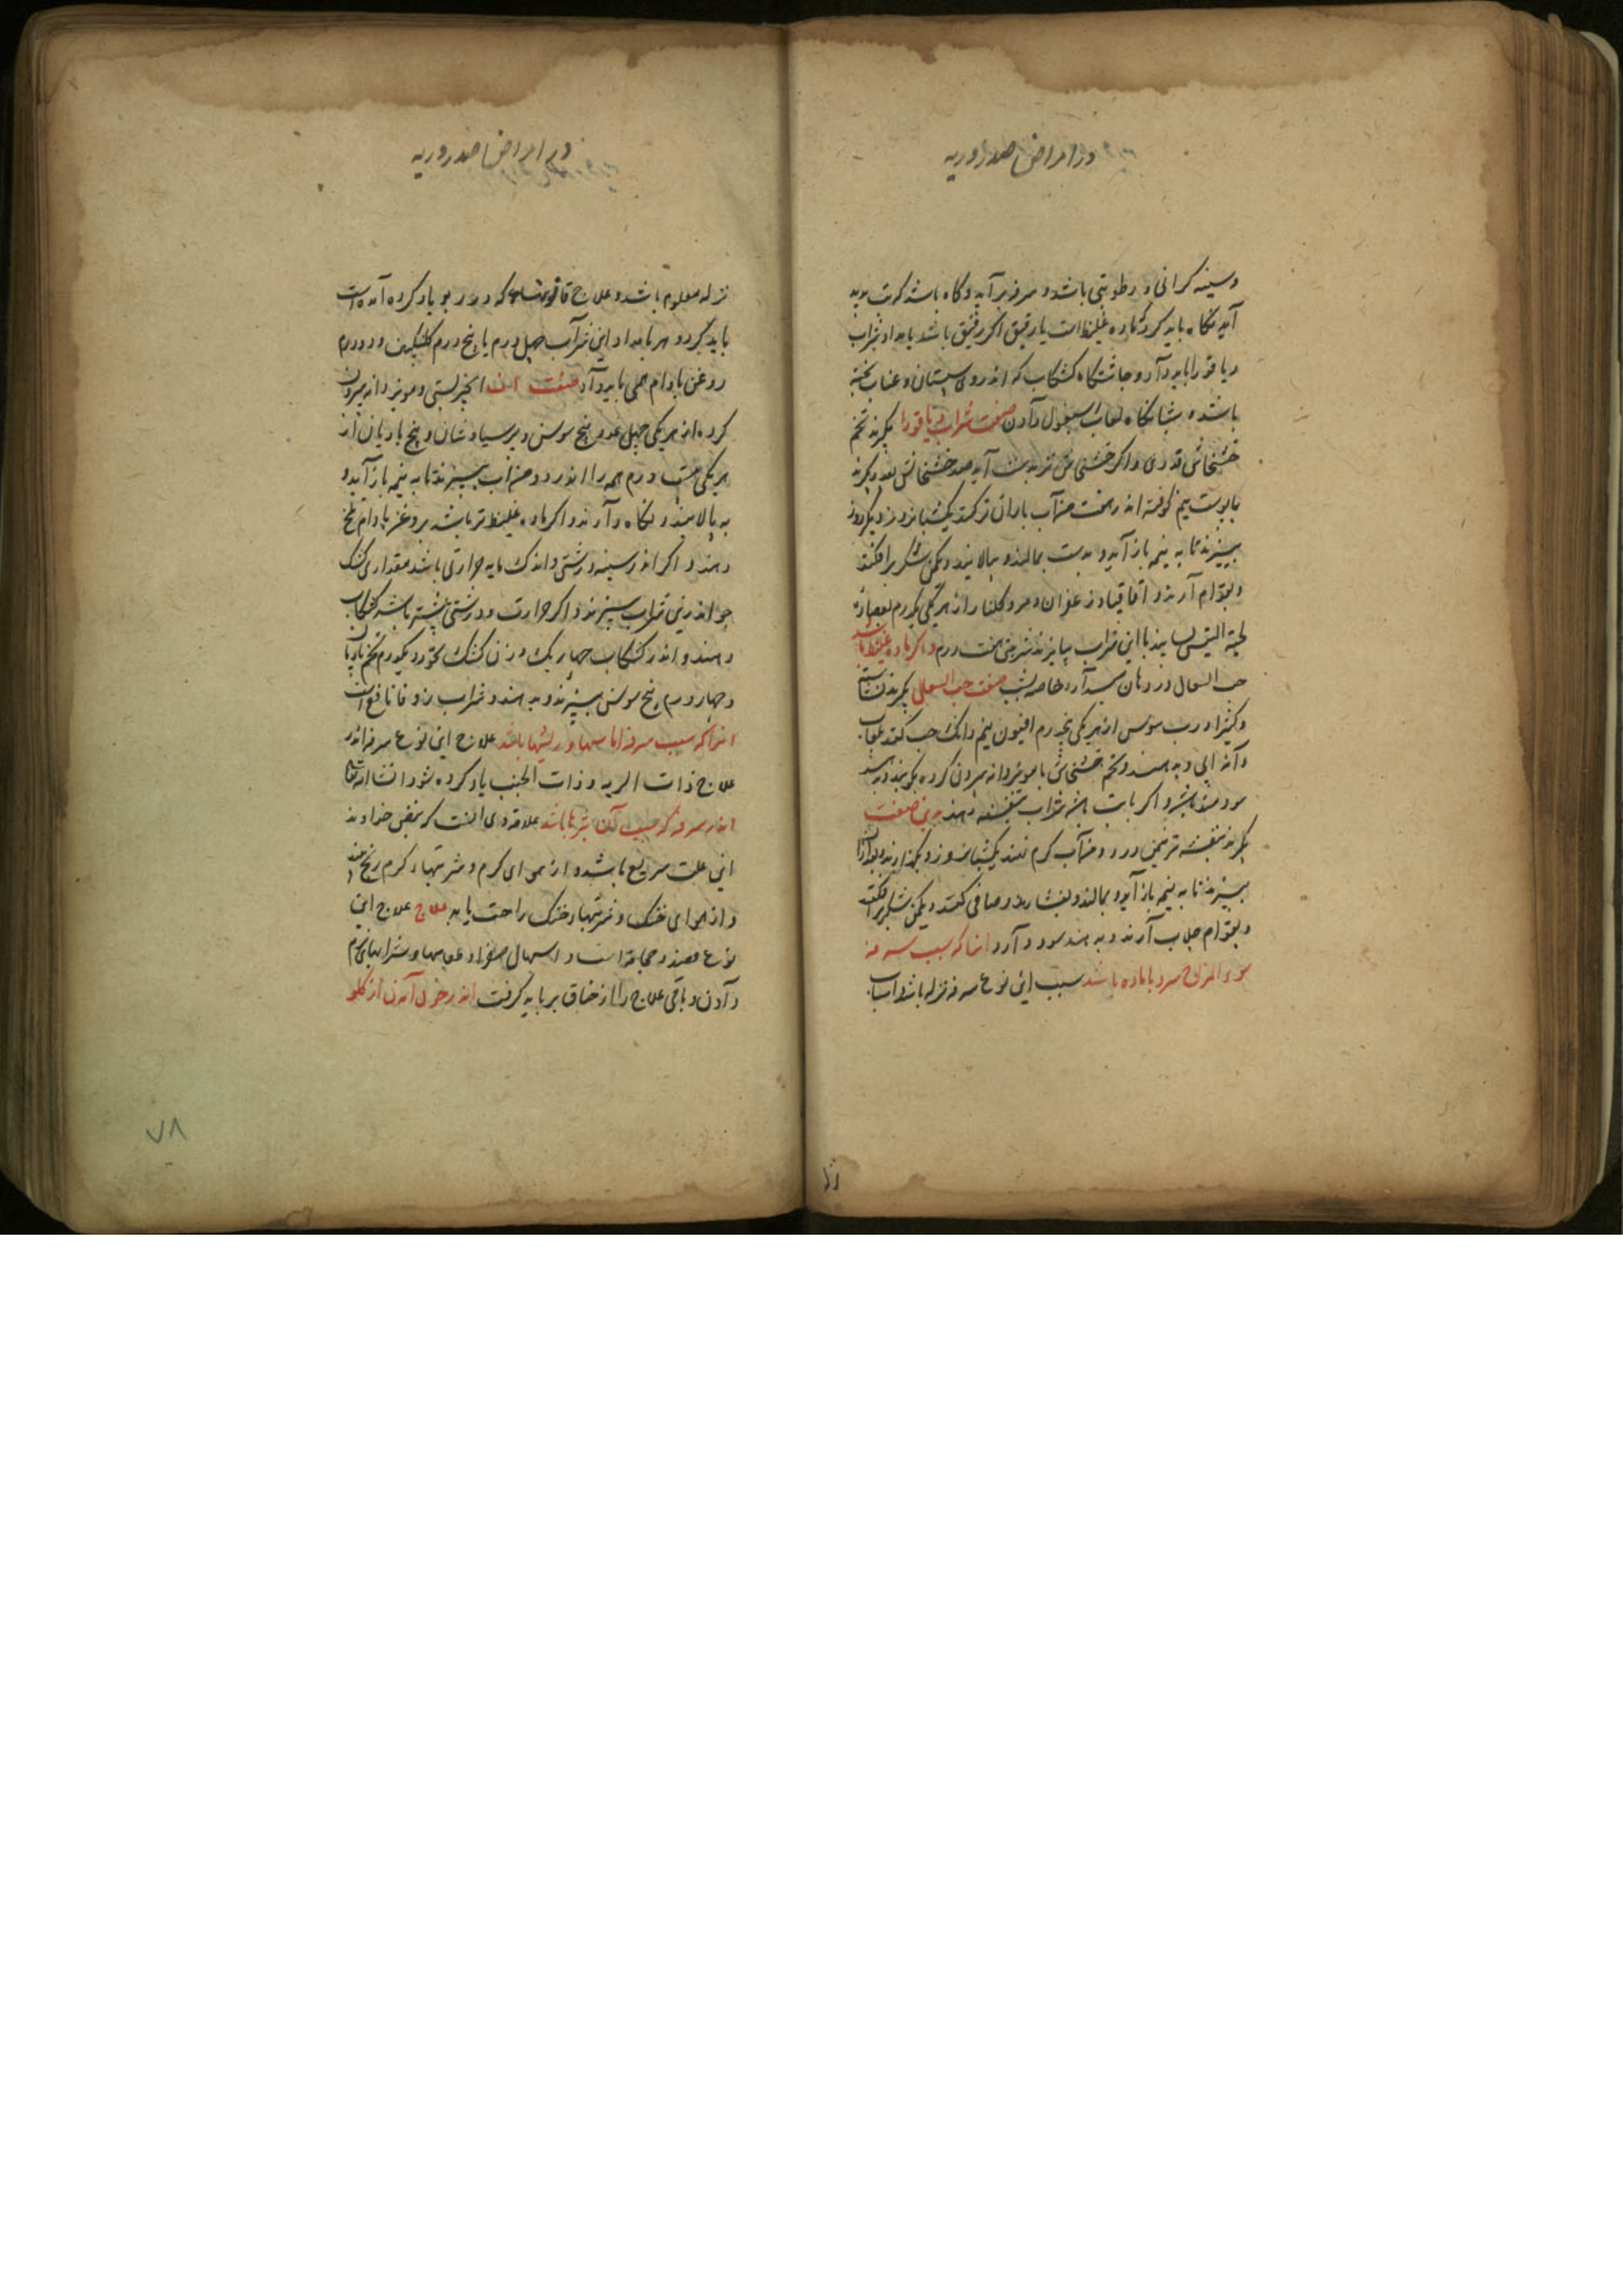 در امراض صدر و ریه
و سینه کرانی و رطوبتی باشد و سرفه بر آید و کاه باشد که تب پدید
آید نکاه باید کرد تا ماده غلیظ است یا رقیق اکر رقیق باشد بامداد شراب
دیاقودا باید داد و چاشتکاه کشکاب که اندروی سپستان و عناب پخته
باشند و شبانکاه لعاب اسبغول دادن صفت شراب دیاقودا بکیرند تخم
خشخاش قدری و اکر خشخاش تر بدست آید صد خشخاش بعدد بکیرند
با پوست نیم کوفته اندر هشت من آب باران تر کنند یکشبانروز و دیکر روز
بپزند تا به نیمه باز آید و بدست بمالند و بپالایند و یکمن شکر برافکنند
و بقوام آرند و اقاقیا و زعفران و مر و کلنار از هر یکی یکدرم بعصاره
لحیة التیس بسایند با این شراب بیامیزند شربتی هفت درم و اکر ماده غلیظ باشد
حب السعال در دهان میدارد خاصه بشب صفت حب السعال بکیرند نشاسته
و کتیرا و رب سوس از هر یکی پنجدرم افیون نیم دانک حب کنند بلعاب
دانه آبی و بدهند و تخم خشخاش با مویز دانه بیرون کرده بکوبند و بدهند
سودمند باشد و اکر با تب باشد شراب بنفشه دهند بدین صفت
بکیرند بنفشه تر نیمن در دو من آب کرم کنند یکشبانروز و بکذارند و بعد از آن
بپزند تا به نیمه باز آید و بمالند و بفشارند و صافی کنند و یکمن شکر برافکنند
و بقوام جلاب آرند و بدهند سود دارد انجا که سبب سرفه
سوء المزاج سرد با ماده باشد سبب این نوع سرفه نزله باشد و اسباب
در امراض صدر و ریه
نزله معلوم باشد و علاج که در ربو یاد کرده آمده است
باید کرد و هر بامداد این شراب چهل درم با پنج درم کلنکبین و دو درم
روغن بادام همی باید داد صفت آن انجیر لستی و مویز دانه بیرون
کرده از هر یکی چهل عدد بیخ سوسن و پرسیاوشان و بیخ بادیان از
هر یکی هشت درم همه را اندر دو من آب بپزند تا به نیمه باز آید و
بپالایند و نکاه دارند و اکر ماده غلیظ تر باشد بروغن بادام تلخ
دهند و اکر اندر سینه درشتی و اندک مایه حرارتی باشد مقداری کشک
جو اندرین شراب بپزند و اکر حرارت و درشتی بیشتر باشد کشکاب
دهند و اندر کشکاب چهار یک وزن کشک یکدرم تخم بادیان
و چهار درم بیخ سوسن بپزند و بدهند و شراب زوفا نافع است
انجا که سبب سرفه اماسها و ریشها باشد علاج این نوع سرفه اندر
علاج ذات الریه و ذات الجنب یاد کرده شود انشا الله تعالی
اندر سرفه که سبب آن بثرها باشد علامة وی آنست که نبض خداوند
این علت سریع باشد و از هوای کرم و شربتهاء کرم رنج بیند
و از هوای خنک و شربتهاء خنک راحت یابد علاج علاج این
نوع فصد و حجامة است و اسهال صفرا و لعابها و شرابهای نرم
دادن و باقی علاج را از خناق بر باید کرفت اندر خون آمدن از کلو
۷۸